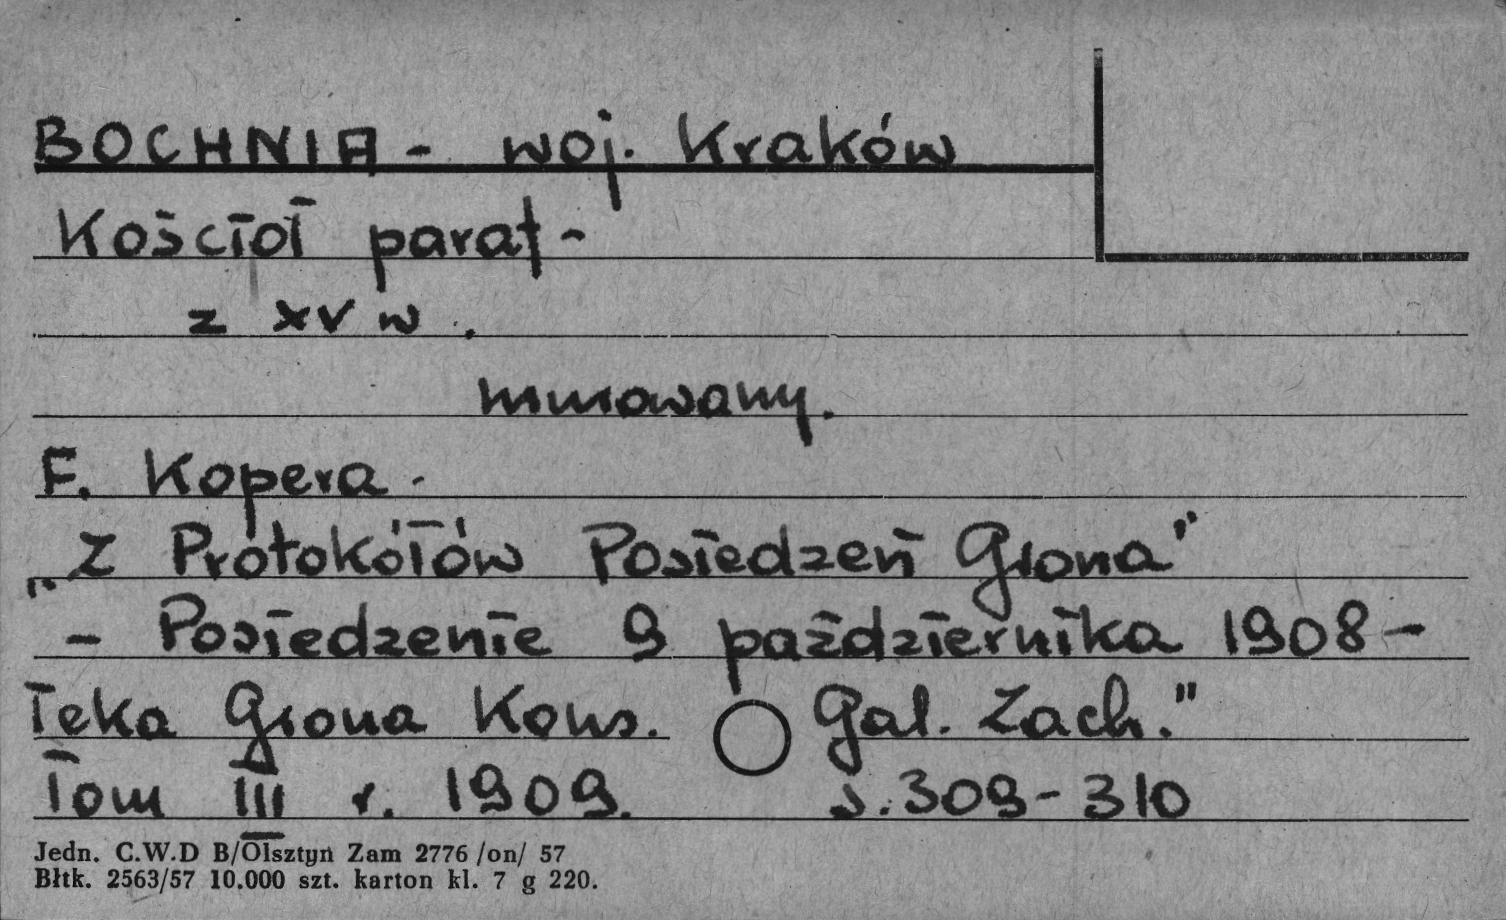 BOCHNIA - woj. Kraków
Kościół paraf-
z XV w.
murowany.
F. Kopera -
"Z Protokółów Posiedzeń Grona"
- Posiedzenie 9 października 1908 -
Teka Grona Kons. Gal. Zach."
Tom III r. 1909. s. 309-310
Jedn. C.W.D B/Olsztyn Zam 2776 /on/ 57
Błtk. 2563/57 10.000 szt. karton kl. 7 g 220.